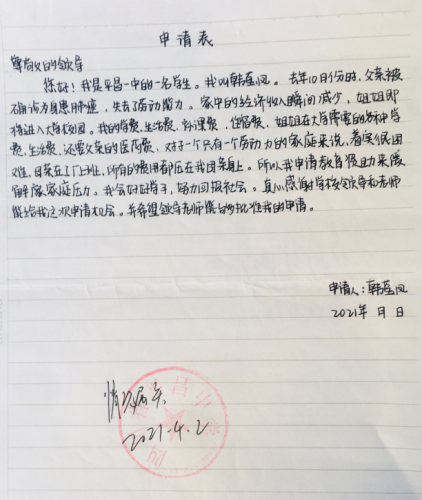 申请表
尊敬的领导
你好！我是平昌一中的一名学生。我叫韩莲凤。去年10日份时，父亲被
确诊为身患肺癌，失去了劳动能力。家中的经济收入瞬间减少，姐姐即
将进入大学校园。我的学费、生活费、补课费、住宿费、姐姐在大有需要的
费、生活费、还要父亲的医药费，对于一个只有一个劳动力的家庭来说，着实很困
难，母亲在工厂上班，所有的费用都压在我母亲身上。所以我申请教育强助来缓
解家庭压力。我会好好学习，努力回报社会。真心感谢学校领导和老师
能给我这次申请机会。并希望领导老师能够批准我的申请。
申请人：韩莲凤
2021年 月 日
情况属实
2021.4.2